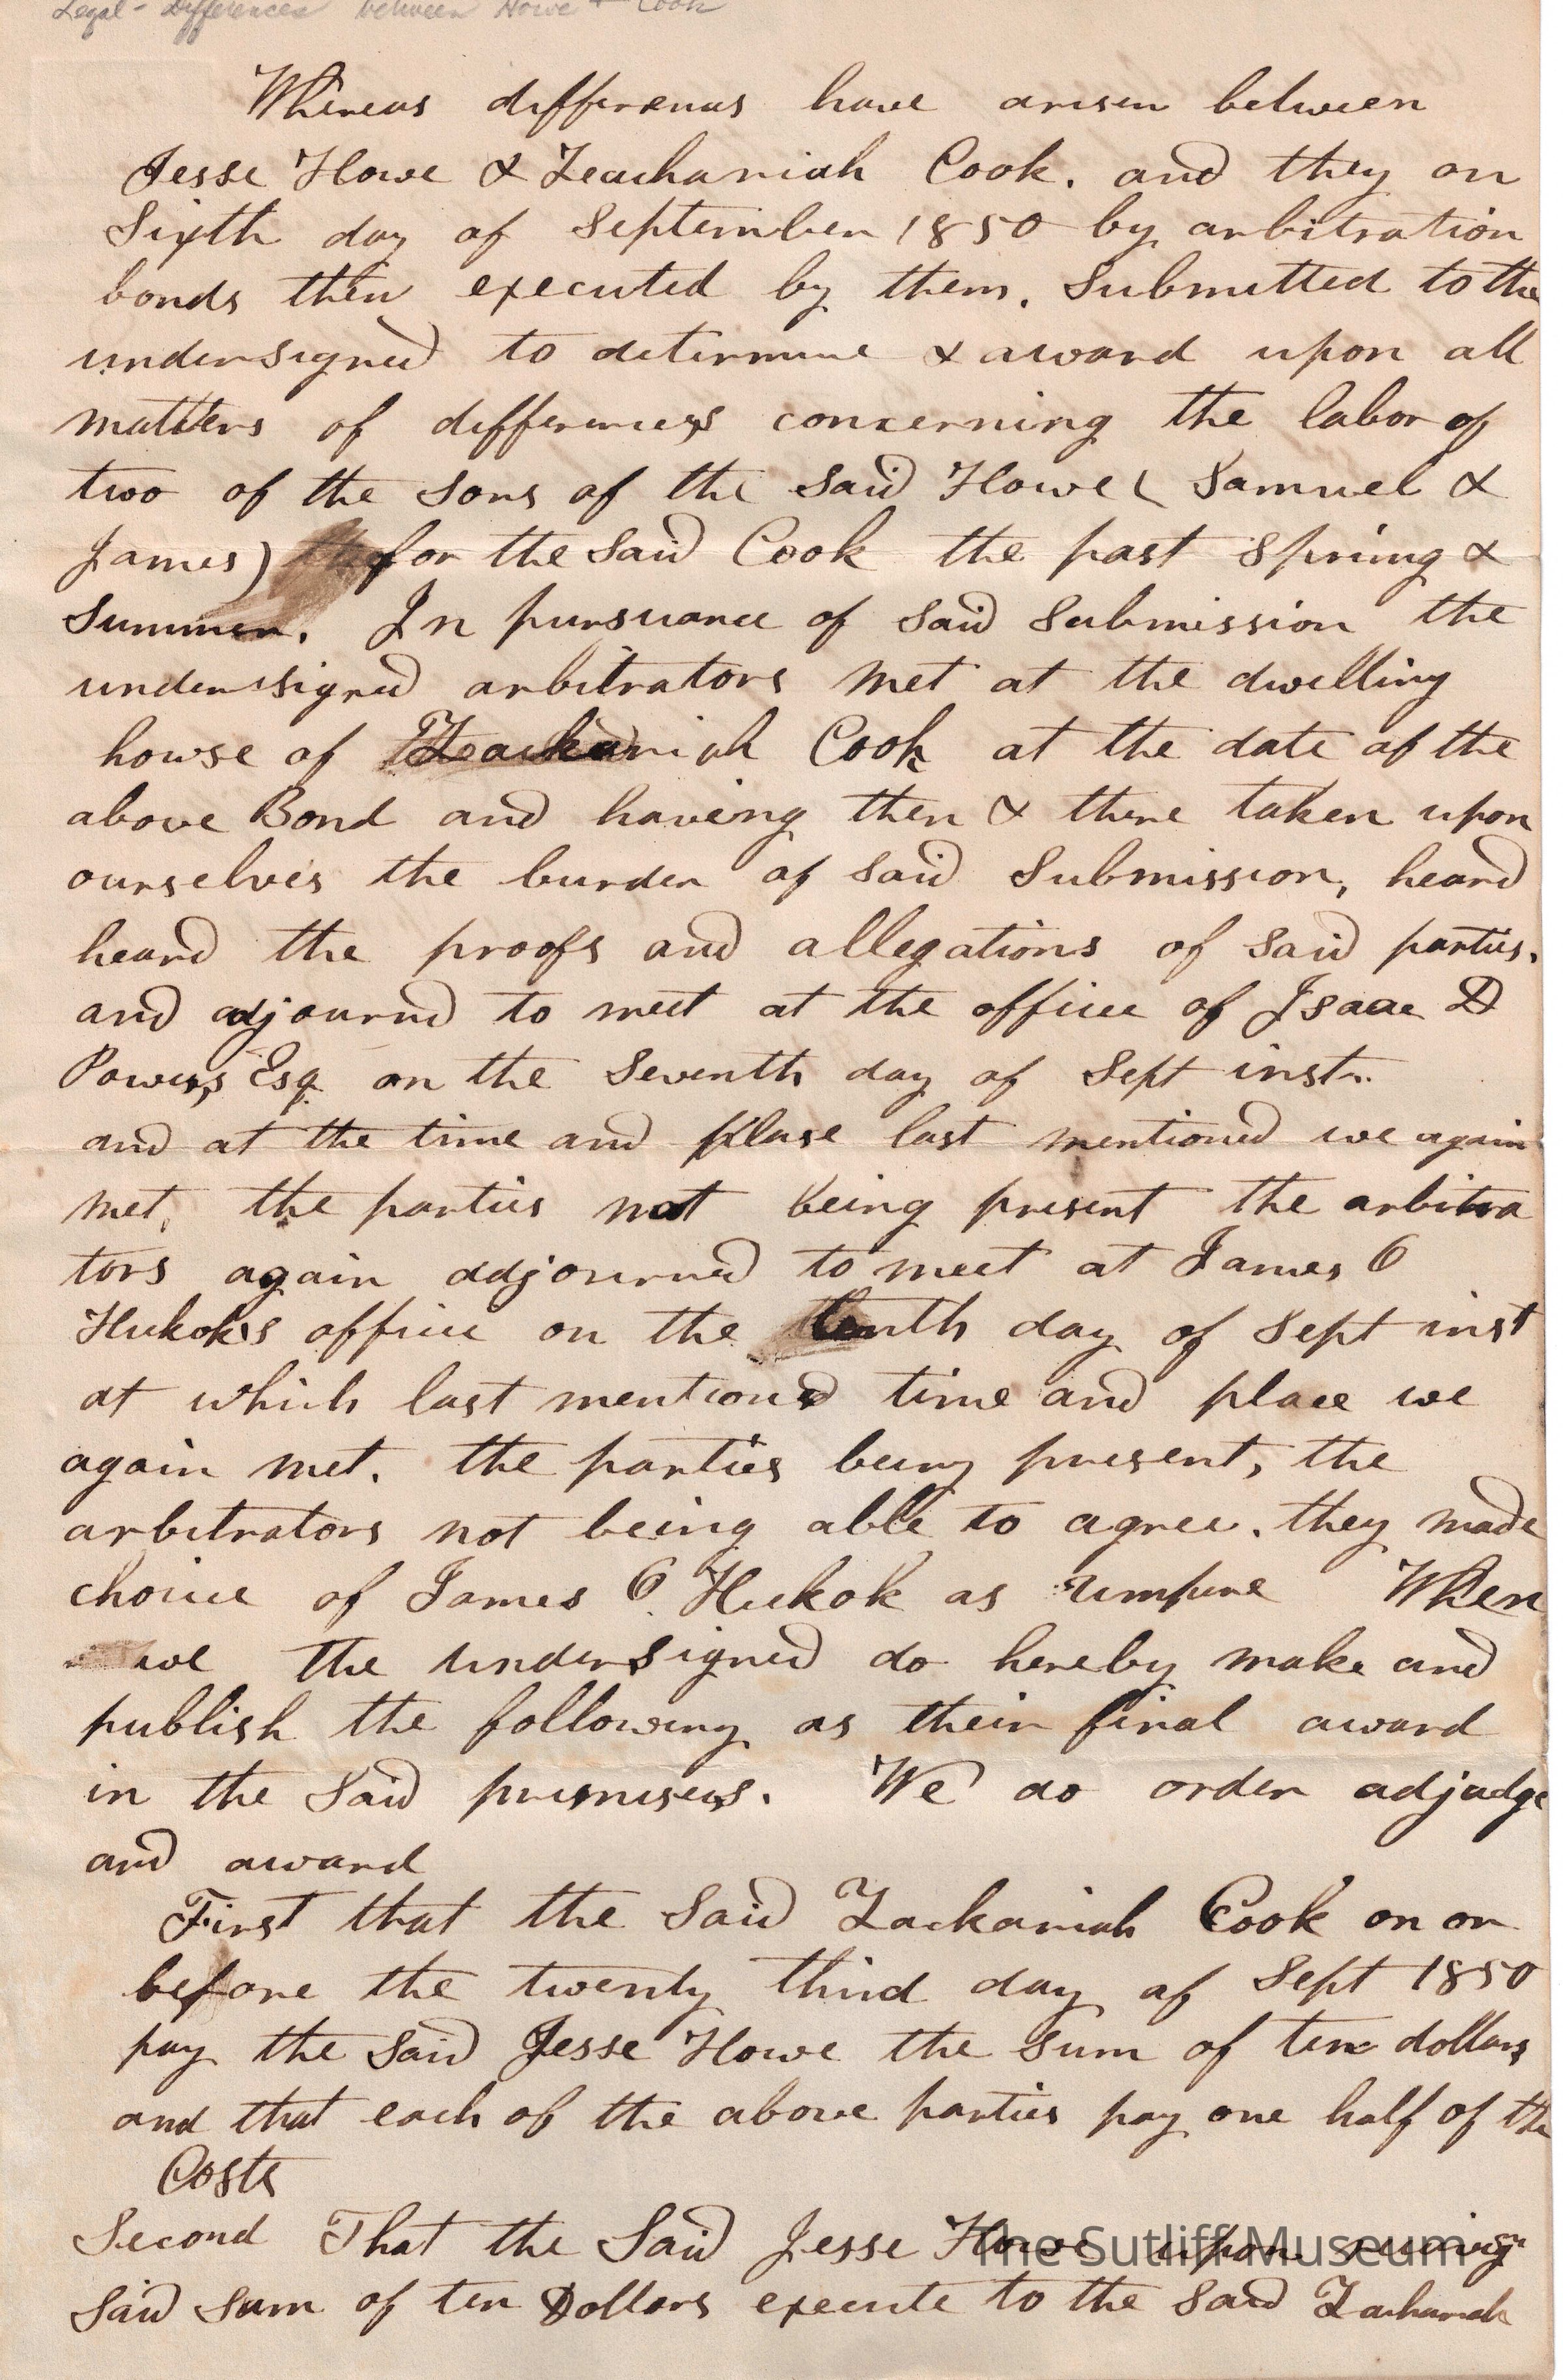 Legal - Differences between Howe + Cook
Whereas differences have arisen between
Jesse Howe & Zeachariah Cook. and they on
Sixth day of September 1850 by arbitration
bonds then executed by them. Submitted to the
undersigned to determine & award upon all
matters of differences concerning the labor of
two of the sons of the said Howe ( Samuel &
James) for the said Cook the past Spring &
Summer. In pursuance of said submission the
undersigned arbitrators met at the dwelling
howse of Zeachariah Cook at the date of the
above Bond and having then & there taken upon
ourselves the burden of said Submission, heard
heard the proofs and allegations of said parties.
and adjournd to meet at the office of Isaac D
Powers, Esq on the Seventh day of Sept inst.
and at the time and plase last mentioned we again
met, the parties not being present the arbitra
tors again adjourned to meet at James O
Hickok's office on the tenth day of Sept inst
at which last mentioned time and place we
again met. the parties being present, the
arbitrators not being able to agree. they made
choice of James O. Hickok as umpire When
we the undersigned do hereby make and
publish the following as their final award
in the said premises. We do order adjudge
and award
First that the said Zackariah Cook on or
before the twenty third day of Sept 1850
pay the said Jesse Howe the sum of ten dollars
and that each of the above parties pay one half of the
Costs
Second That the Said Jesse Howe upon
The Sutliff Museum
said sum of ten Dollars execute to the said Zachariah